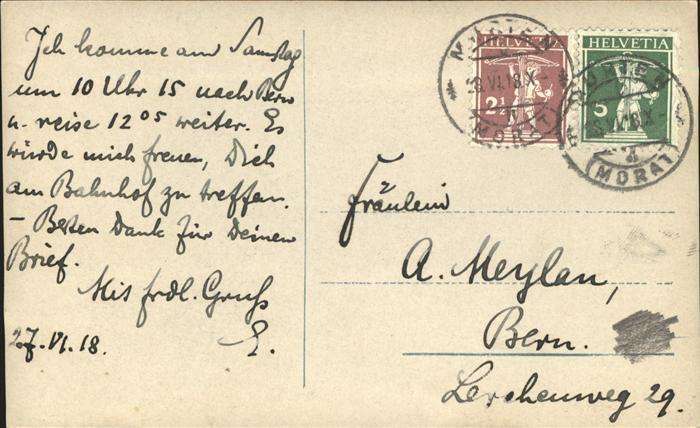 Ich komme am Samstag
um 10 Uhr 15 nach Bern
u. reise 12 05 weiter. Es
würde mich freuen, Dich
am Bahnhof zu treffen.
– Besten Dank für Deinen
Brief.
Mit frdl. Gruss
27.VI.18. E.
HELVETIA
2½
HELVETIA
5
MURTEN
VI.18.X
(MORAT)
MURTEN
VI.18.X
(MORAT)
Fräulein
A. Meylan,
Bern.
Lerchenweg 29.